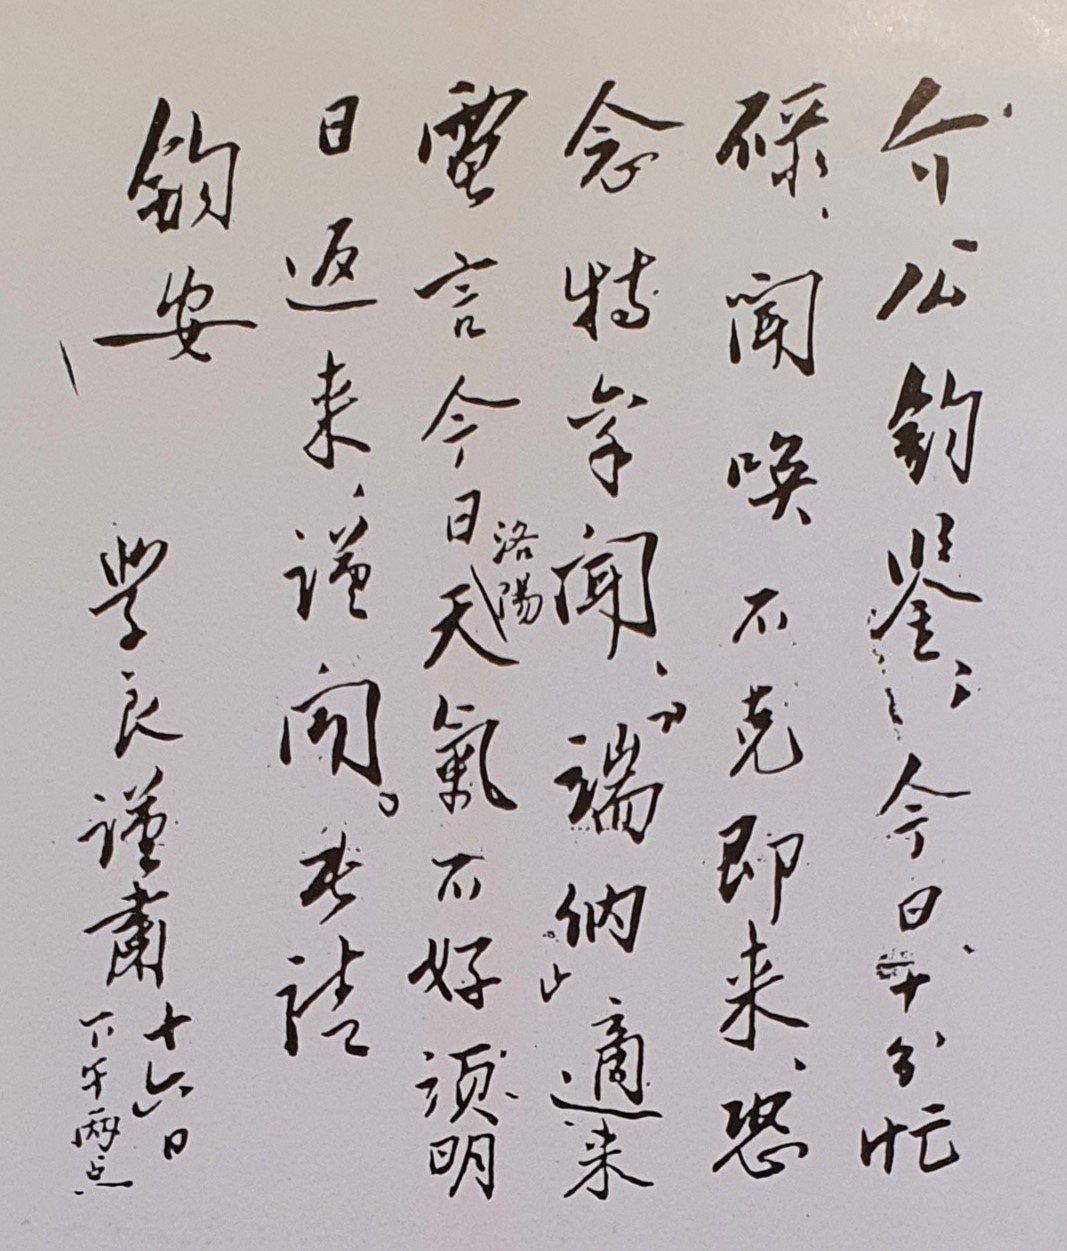 介公鈞鑒：今日十分忙
碌，聞喚不克即来，恐
念特拿聞，“端納”適来
電言今日洛陽天氣不好須明
日返来，謹聞。恭請
鈞安
學良謹肅 十六日
下午兩点